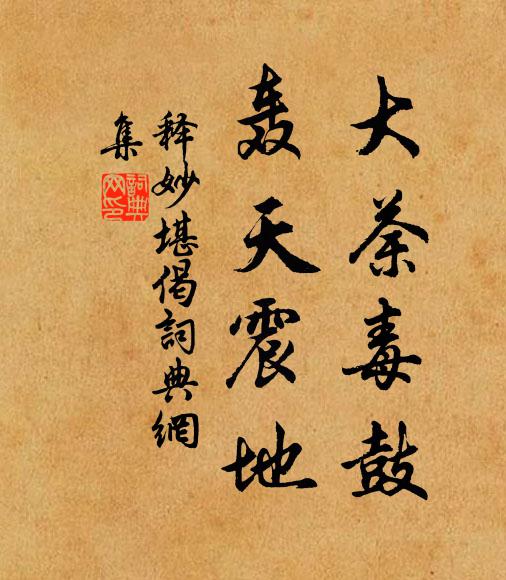 大荼毒鼓
轰天震地
释妙堪偈詞典網
集
詞典
网印